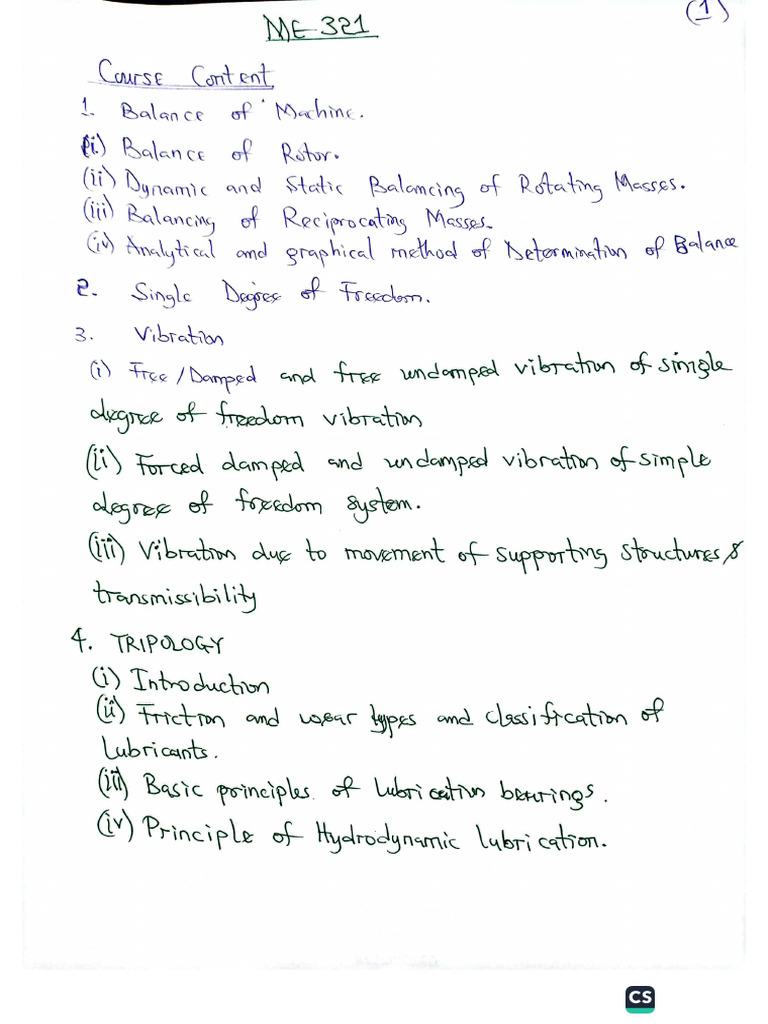 (1)
ME 321
Course Content
1. Balance of Machine.
(i) Balance of Rotor.
(ii) Dynamic and Static Balancing of Rotating Masses.
(iii) Balancing of Reciprocating Masses.
(iv) Analytical and graphical method of Determination of Balance
2. Single Degree of Freedom.
3. Vibration
(i) Free/Damped and free undamped vibration of simgle
degree of freedom vibration
(ii) Forced damped and undamped vibration of simple
degree of freedom system.
(iii) Vibration due to movement of supporting structures &
transmissibility
4. TRIPOLOGY
(i) Introduction
(ii) Friction and wear types and classification of
lubricants.
(iii) Basic principles of lubrication bearings.
(iv) Principle of Hydrodynamic lubrication.
CS